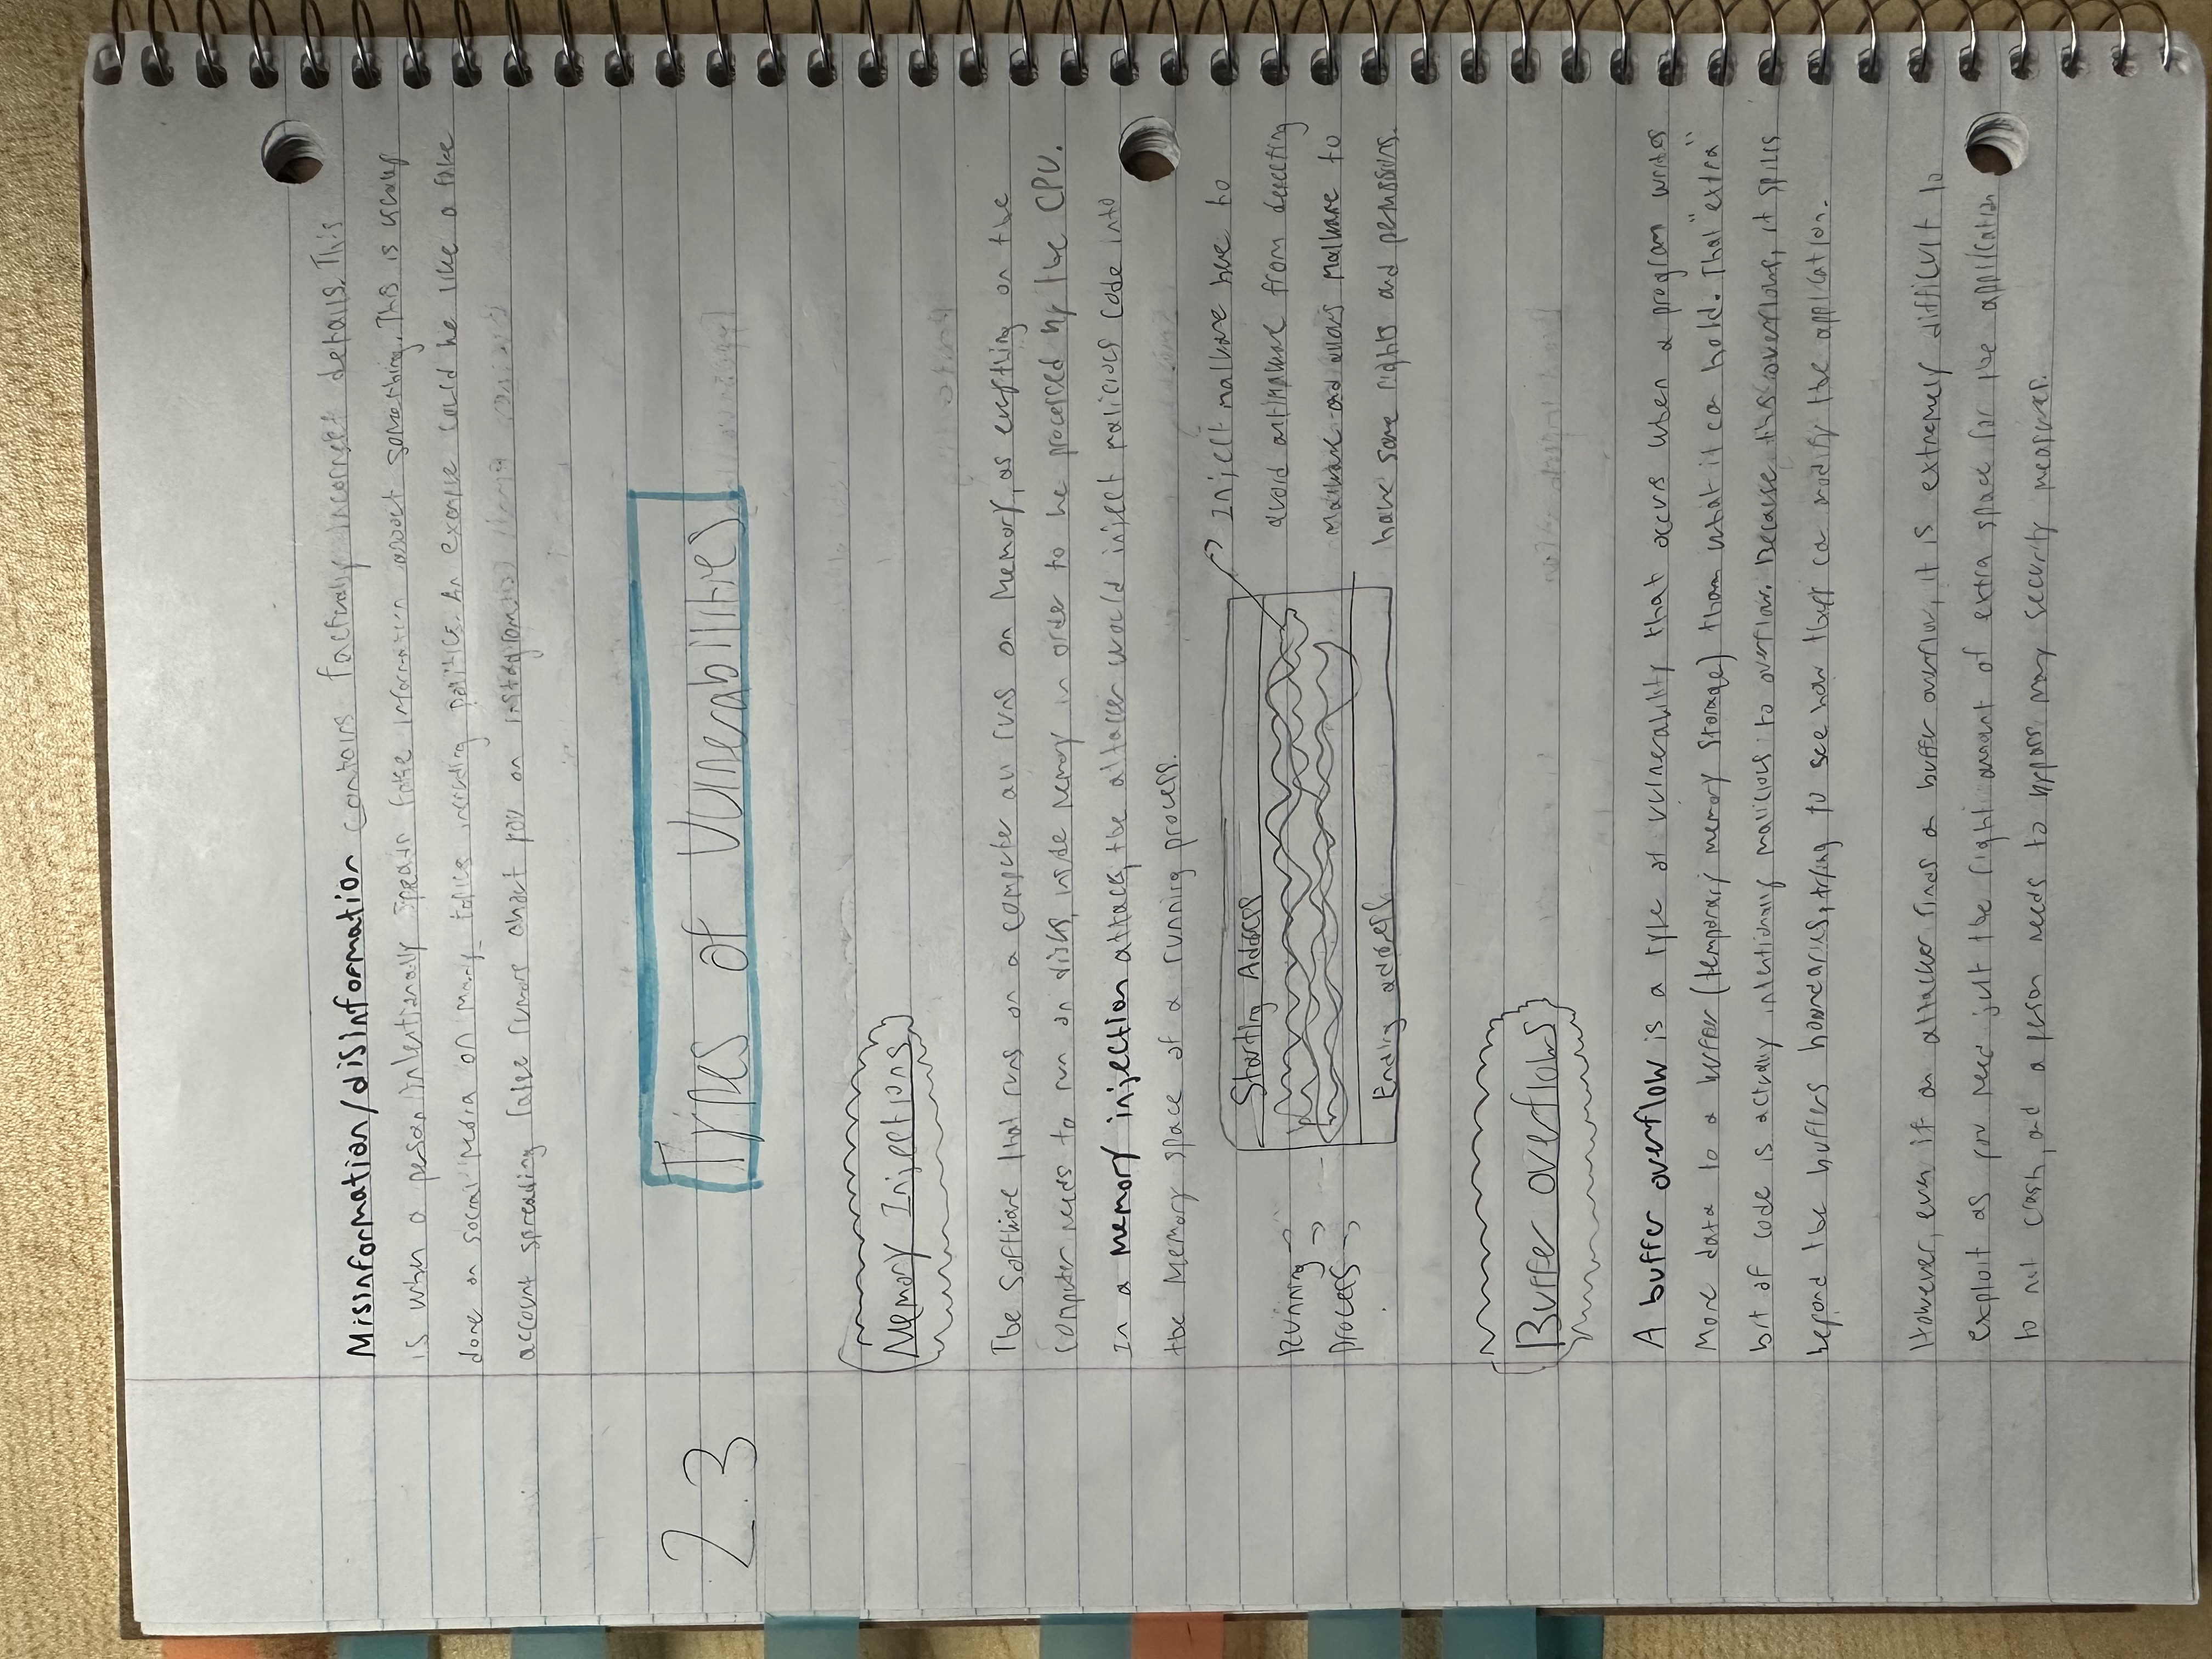 Misinformation/disinformation contains factually incorrect details. This
is when a person intentionally spreads fake information about something. This is usually
done on social media on many topics including politics. An example could be like a fake
account spreading false rumors about you on instagram.
2.3
Types of Vulnerabilities
Memory Injections
The software that runs on a computer all runs on memory, as everything on the
computer needs to run on disks, inside memory in order to be processed by the CPU.
In a memory injection attack, the attacker would inject malicious code into
the memory space of a running process.
Running
Process
Starting Address
Ending address
Inject malware here to
avoid antimalware from detecting
malware and allows malware to
have same rights and permissions.
Buffer overflows
A buffer overflow is a type of vulnerability that occurs when a program writes
more data to a buffer (temporary memory storage) than what it can hold. That "extra"
bit of code is actually intentionally malicious to overflow. Because this overflows, it spills
beyond the buffers boundaries, trying to see how they can modify the application.
However, even if an attacker finds a buffer overflow, it is extremely difficult to
exploit as you need just the right amount of extra space for the application
to not crash, and a person needs to bypass many security measures.